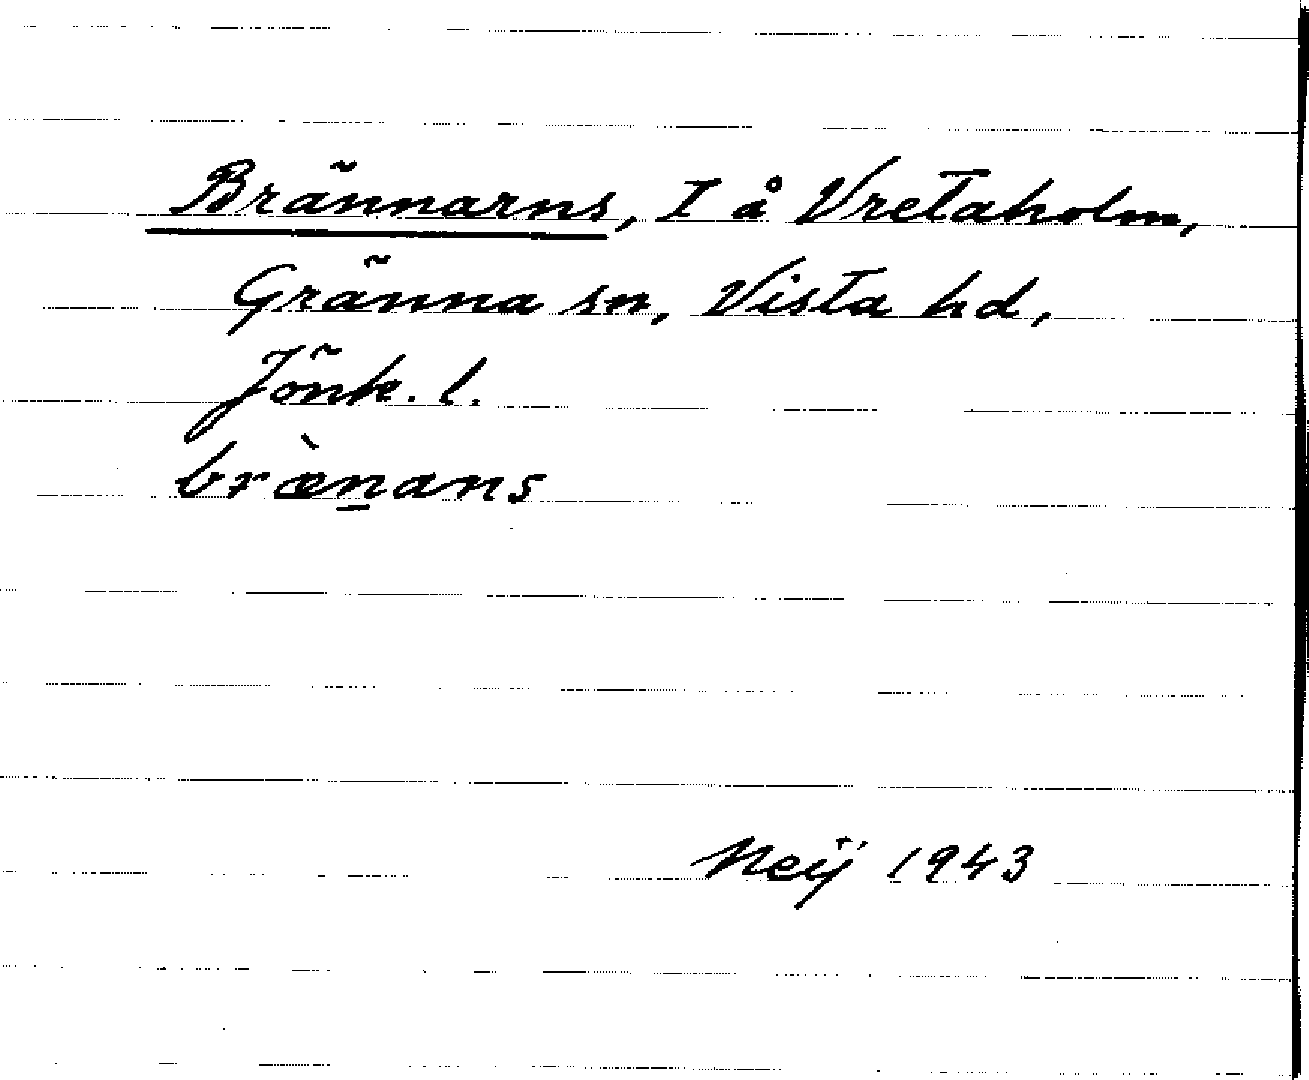 Brännarns, I å Vretaholm,
Gränna sn, Vista hd,
Jönk. l.
bræ̀n̲ans
Neij 1943